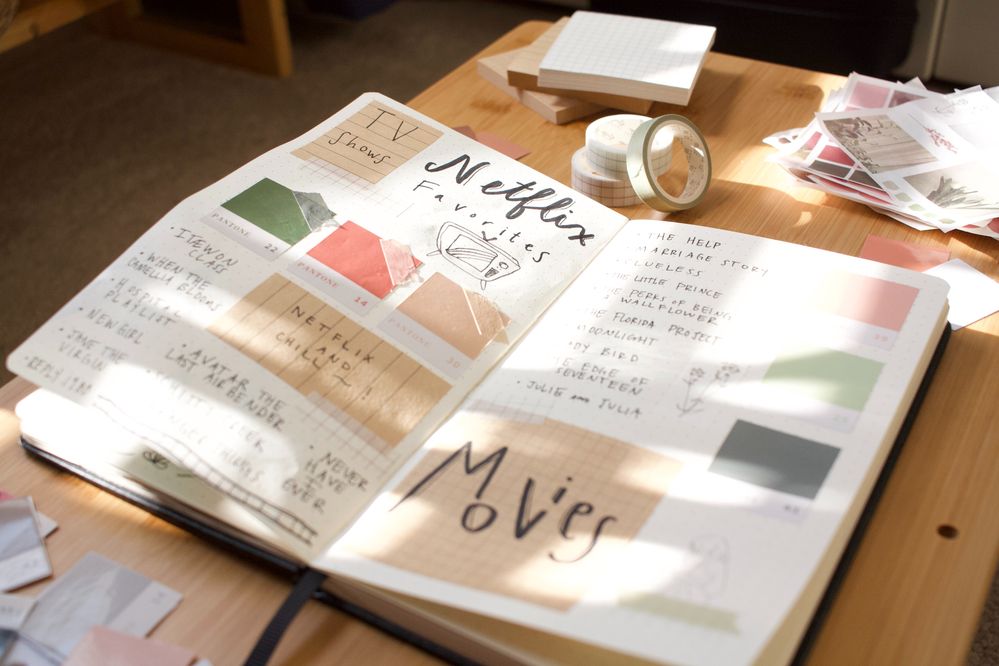 TV
Shows
Netflix
Favorites
PANTONE
22
PANTONE
14
PANTONE
30
• ITEWON
CLASS
• WHEN THE
CAMELLIA BLOOMS
• HOSPITAL
PLAYLIST
• NEW GIRL
• JANE THE
VIRGIN
• REPLY 1988
NETFLIX
AND
CHILL ~ !
• AVATAR THE
LAST AIRBENDER
THINGS
• NEVER
HAVE I
EVER
• THE HELP
MARRIAGE STORY
CLUELESS
THE LITTLE PRINCE
THE PERKS OF BEING
A WALLFLOWER
THE FLORIDA PROJECT
MOONLIGHT
LADY BIRD
THE EDGE OF
SEVENTEEN
• JULIE AND JULIA
Movies